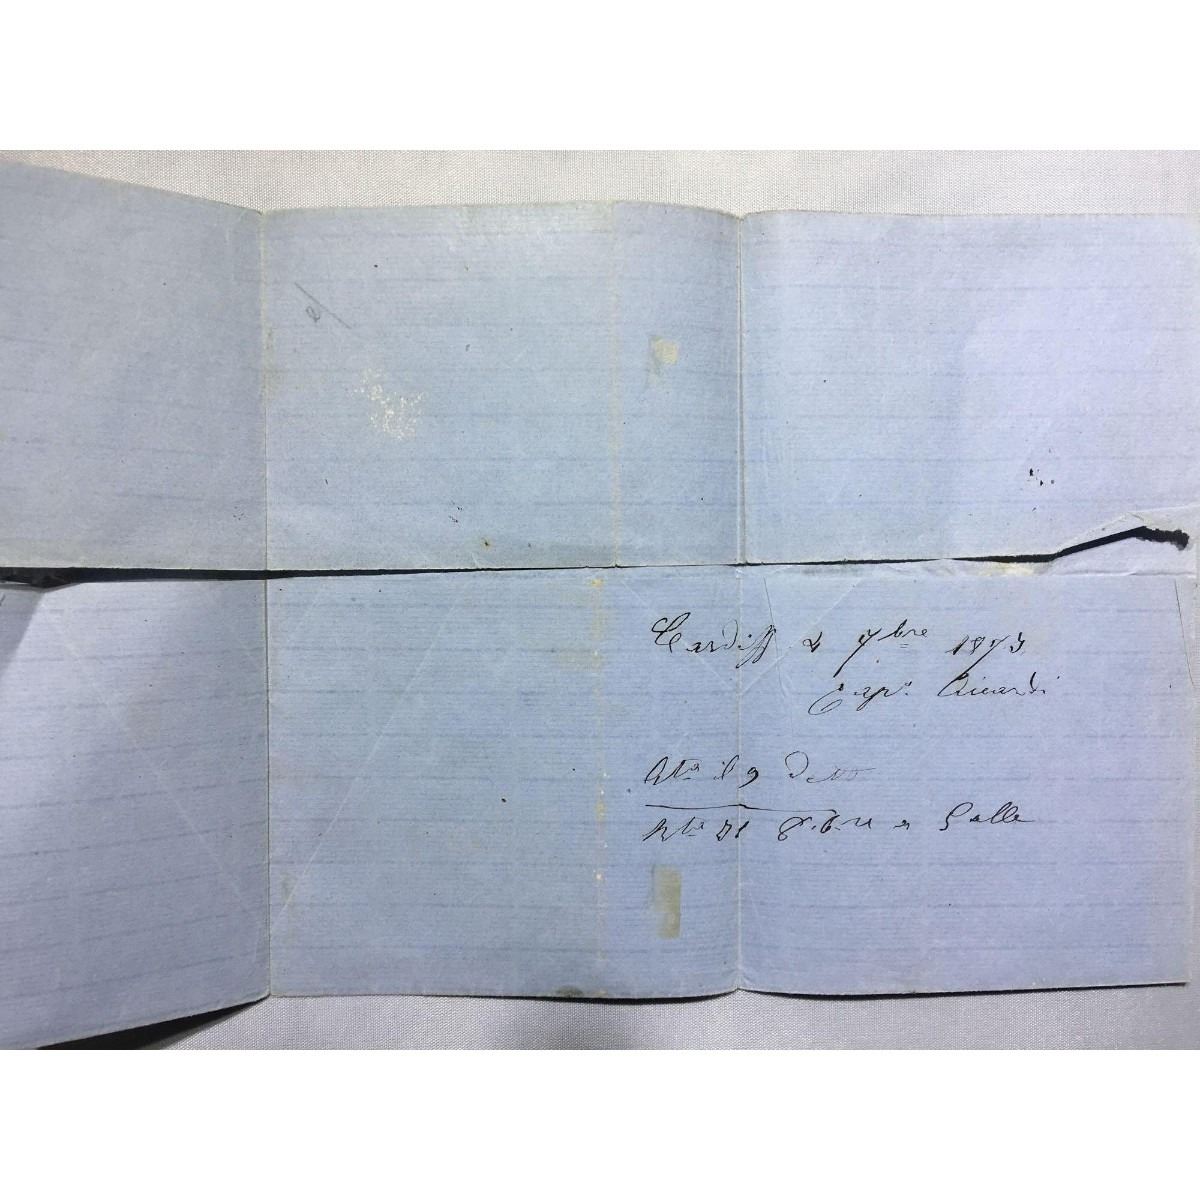 Cardiff 4 7bre 1873
Capn. Ricardi
il 9 Detto
31 8.bre a Galle